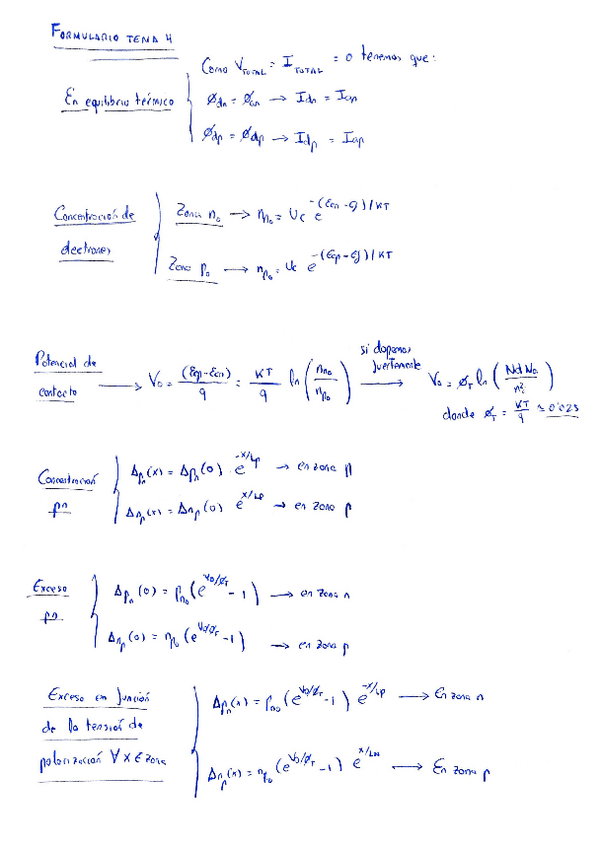 FORMULARIO TEMA 4
Como V_TOTAL = I_TOTAL = 0 tenemos que:
En equilibrio térmico
Ø_dn = Ø_an → I_dn = I_an
Ø_dp = Ø_dp → I_dp = I_ap
Concentración de
electrones
Zona n_o → n_no = U_c e^-(Ecn - Ef)/KT
Zona p_o → n_po = U_c e^-(Ecp - Ef)/KT
Potencial de
contacto
→ V_o = (Ecp - Ecn)/q = KT/q ln (n_no/n_po)
si dopamos
fuertemente
→ V_o = Ø_T ln (Nd Na/n_i²)
donde Ø_T = KT/q ≈ 0'025
Concentración
pn
Δp_n(x) = Δp_n(0) e^-x/Lp → en zona n
Δn_p(x) = Δn_p(0) e^x/Lp → en zona p
Exceso
pn
Δp_n(0) = p_no (e^V0/Ø_T - 1) → en zona n
Δn_p(0) = n_po (e^V0/Ø_T - 1) → en zona p
Exceso en función
de la tensión de
polarización ∀ x ∈ zona
Δp_n(x) = p_no (e^V0/Ø_T - 1) e^-x/Lp → En zona n
Δn_p(x) = n_po (e^V0/Ø_T - 1) e^x/Ln → En zona p